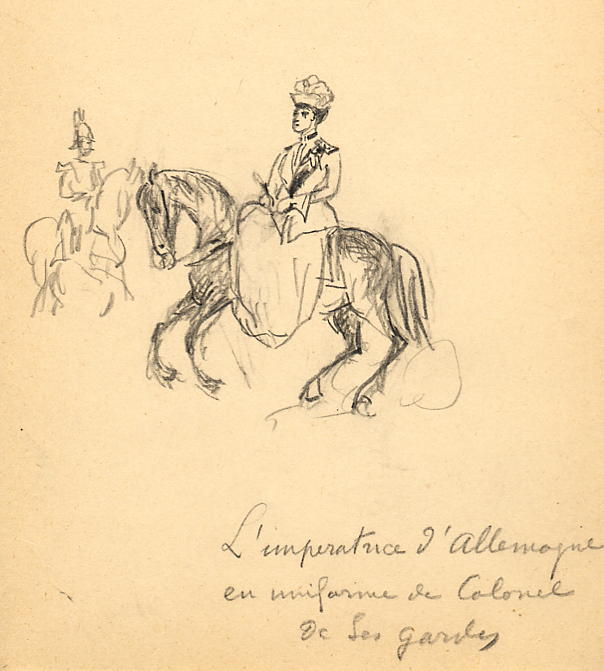 L'imperatrice d'Allemagne
en uniforme de Colonel
de Ses gardes